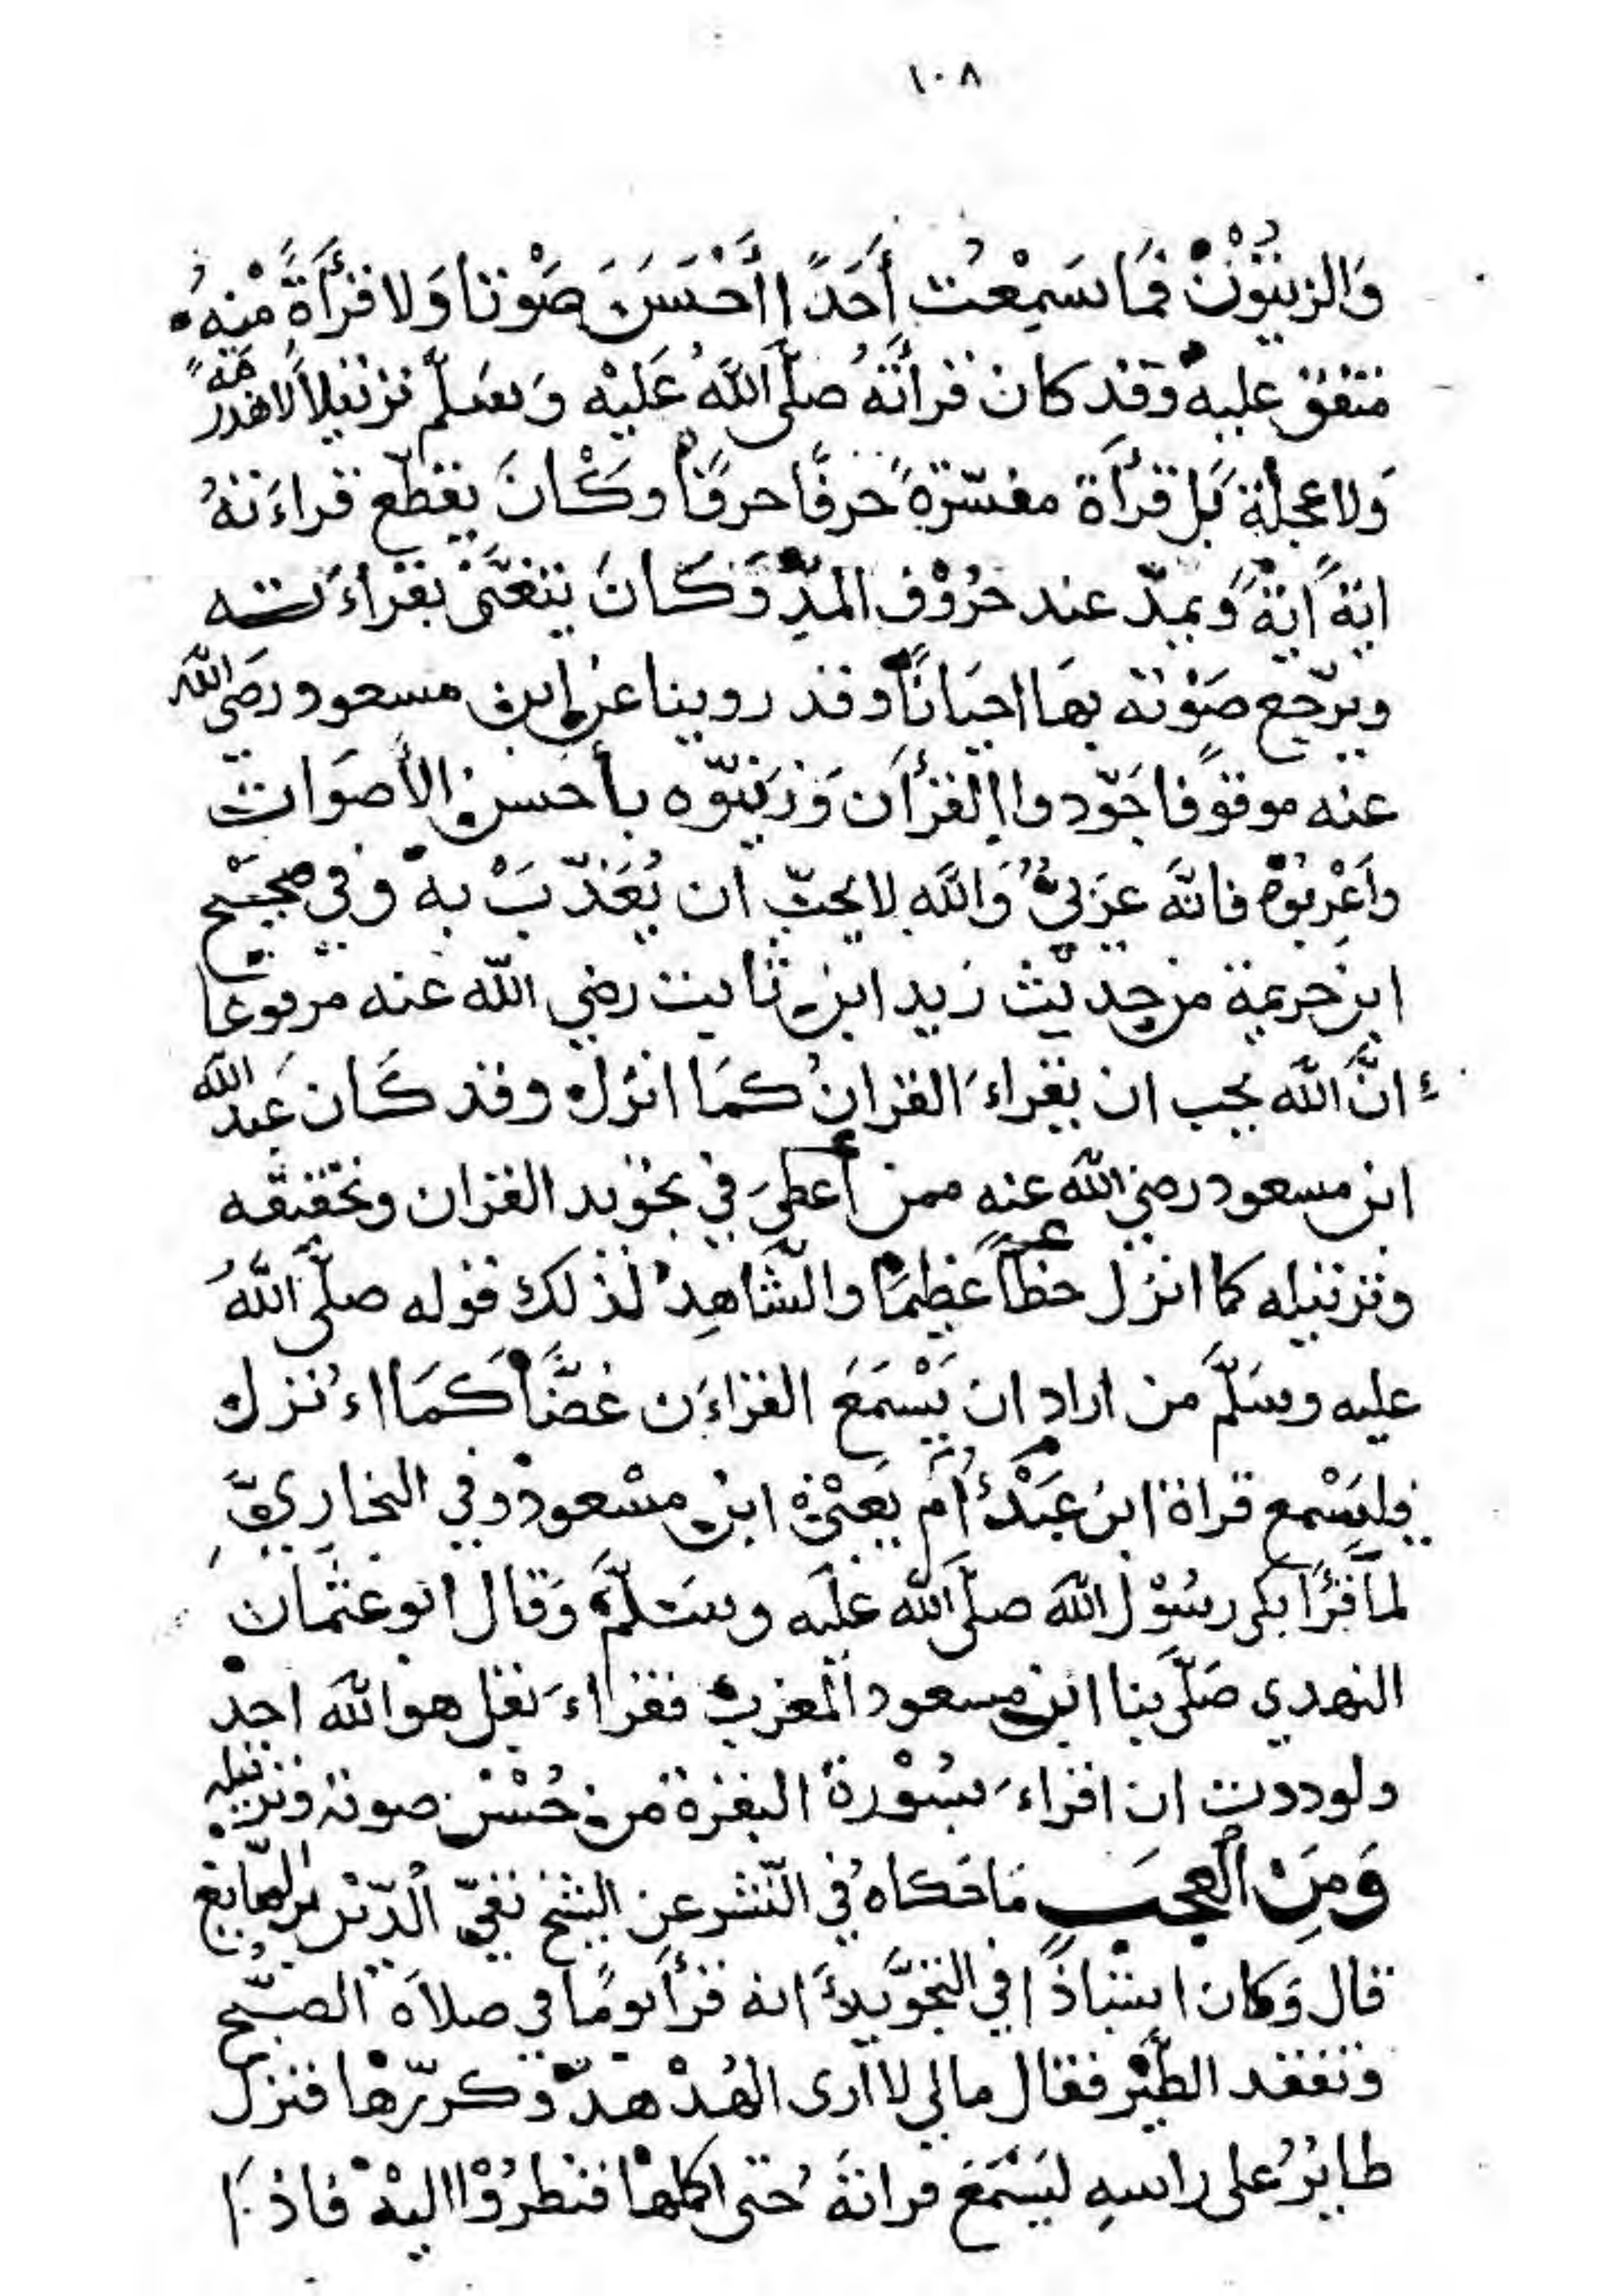 ١٠٨
وَالزيتُوْنْ فمَا سَمِعْتُ أَحَدًا أَحْسَنَ صَوْتا وَلا قرْأَةً مْنِهُ
متفق عليه وَقد كان قرأَتُهُ صلَّى اللَّهُ عَلَيْه وَسَلّم ترتيلاً لاهذَّ
وَلا عجلة بَل قرْأَة مفسّرَة حرفًا حرفًا وكْانَ يقطّع قراءَتهُ
ايةً ايةً وَيمدّ عند حُرُوْف المدِّ وَكَانَ يتغَنَّى بقرْاءَته
ويرّجع صَوْته بهَا احيَانًا وقد روينا عن ابن مسعود رضَى الله
عنه موقوفا جَوّدوا القرْأَن وَزيّنوّه بأحسن الأصوَات
وأَعْرِبُوْه فانَّه عرَبيٌ وَاللّه لا يحبّ ان يُعَذّبَ به وفى صحيْح
ابن خزيمة من حديث زيد ابن ثابت رضي اللّه عنه مرفوعا
انَّ اللّه يحب ان يقراءَ القرانُ كمَا انزل وقد كَان عَبد الله
ابن مسعود رضي اللّه عنه ممن أعطيَ في تجويد القران وتحقيقه
وترتيله كما انزل حظاً عظيمًا والشَّاهِدُ لذلك قوله صلَّى اللَّهُ
عليه وسَلَّم من اراد ان يَسْمَعَ القراءَن غضًّا كَمَا اءُنزل
فليَسْمع قراة ابن عَبْد أُم يَعنْى ابن مسْعود وفي البخاريِّ
لما قرَأَ بكى رسُوْل اللّه صلَّى اللّه علَيه وسَلَّم وَقال ابو عثمان
النهدي صَلَّى بنا ابن مسعود المغرب فقراءَ بقل هو اللّه احد
ولوددت ان اقراءَ بسُوْرة البقرة من حُسْن صوته وترتيله
وَمِنَ العجَب مَا حَكاه في النّشر عن الشيخ تقيّ الدّيْن بن الصّايغ
قال وَكان استاذًا في التجوّيد أَنه قرَأ يومًا في صلاَة الصبْح
وتفقد الطّيْر فقال مالي لا ارى الهُدْهدْ وكرّرْها فنزل
طايرُ على راسهِ ليَسْمَعَ قراتهُ حتى اكملها فنظرُوْا اليهْ فاذا